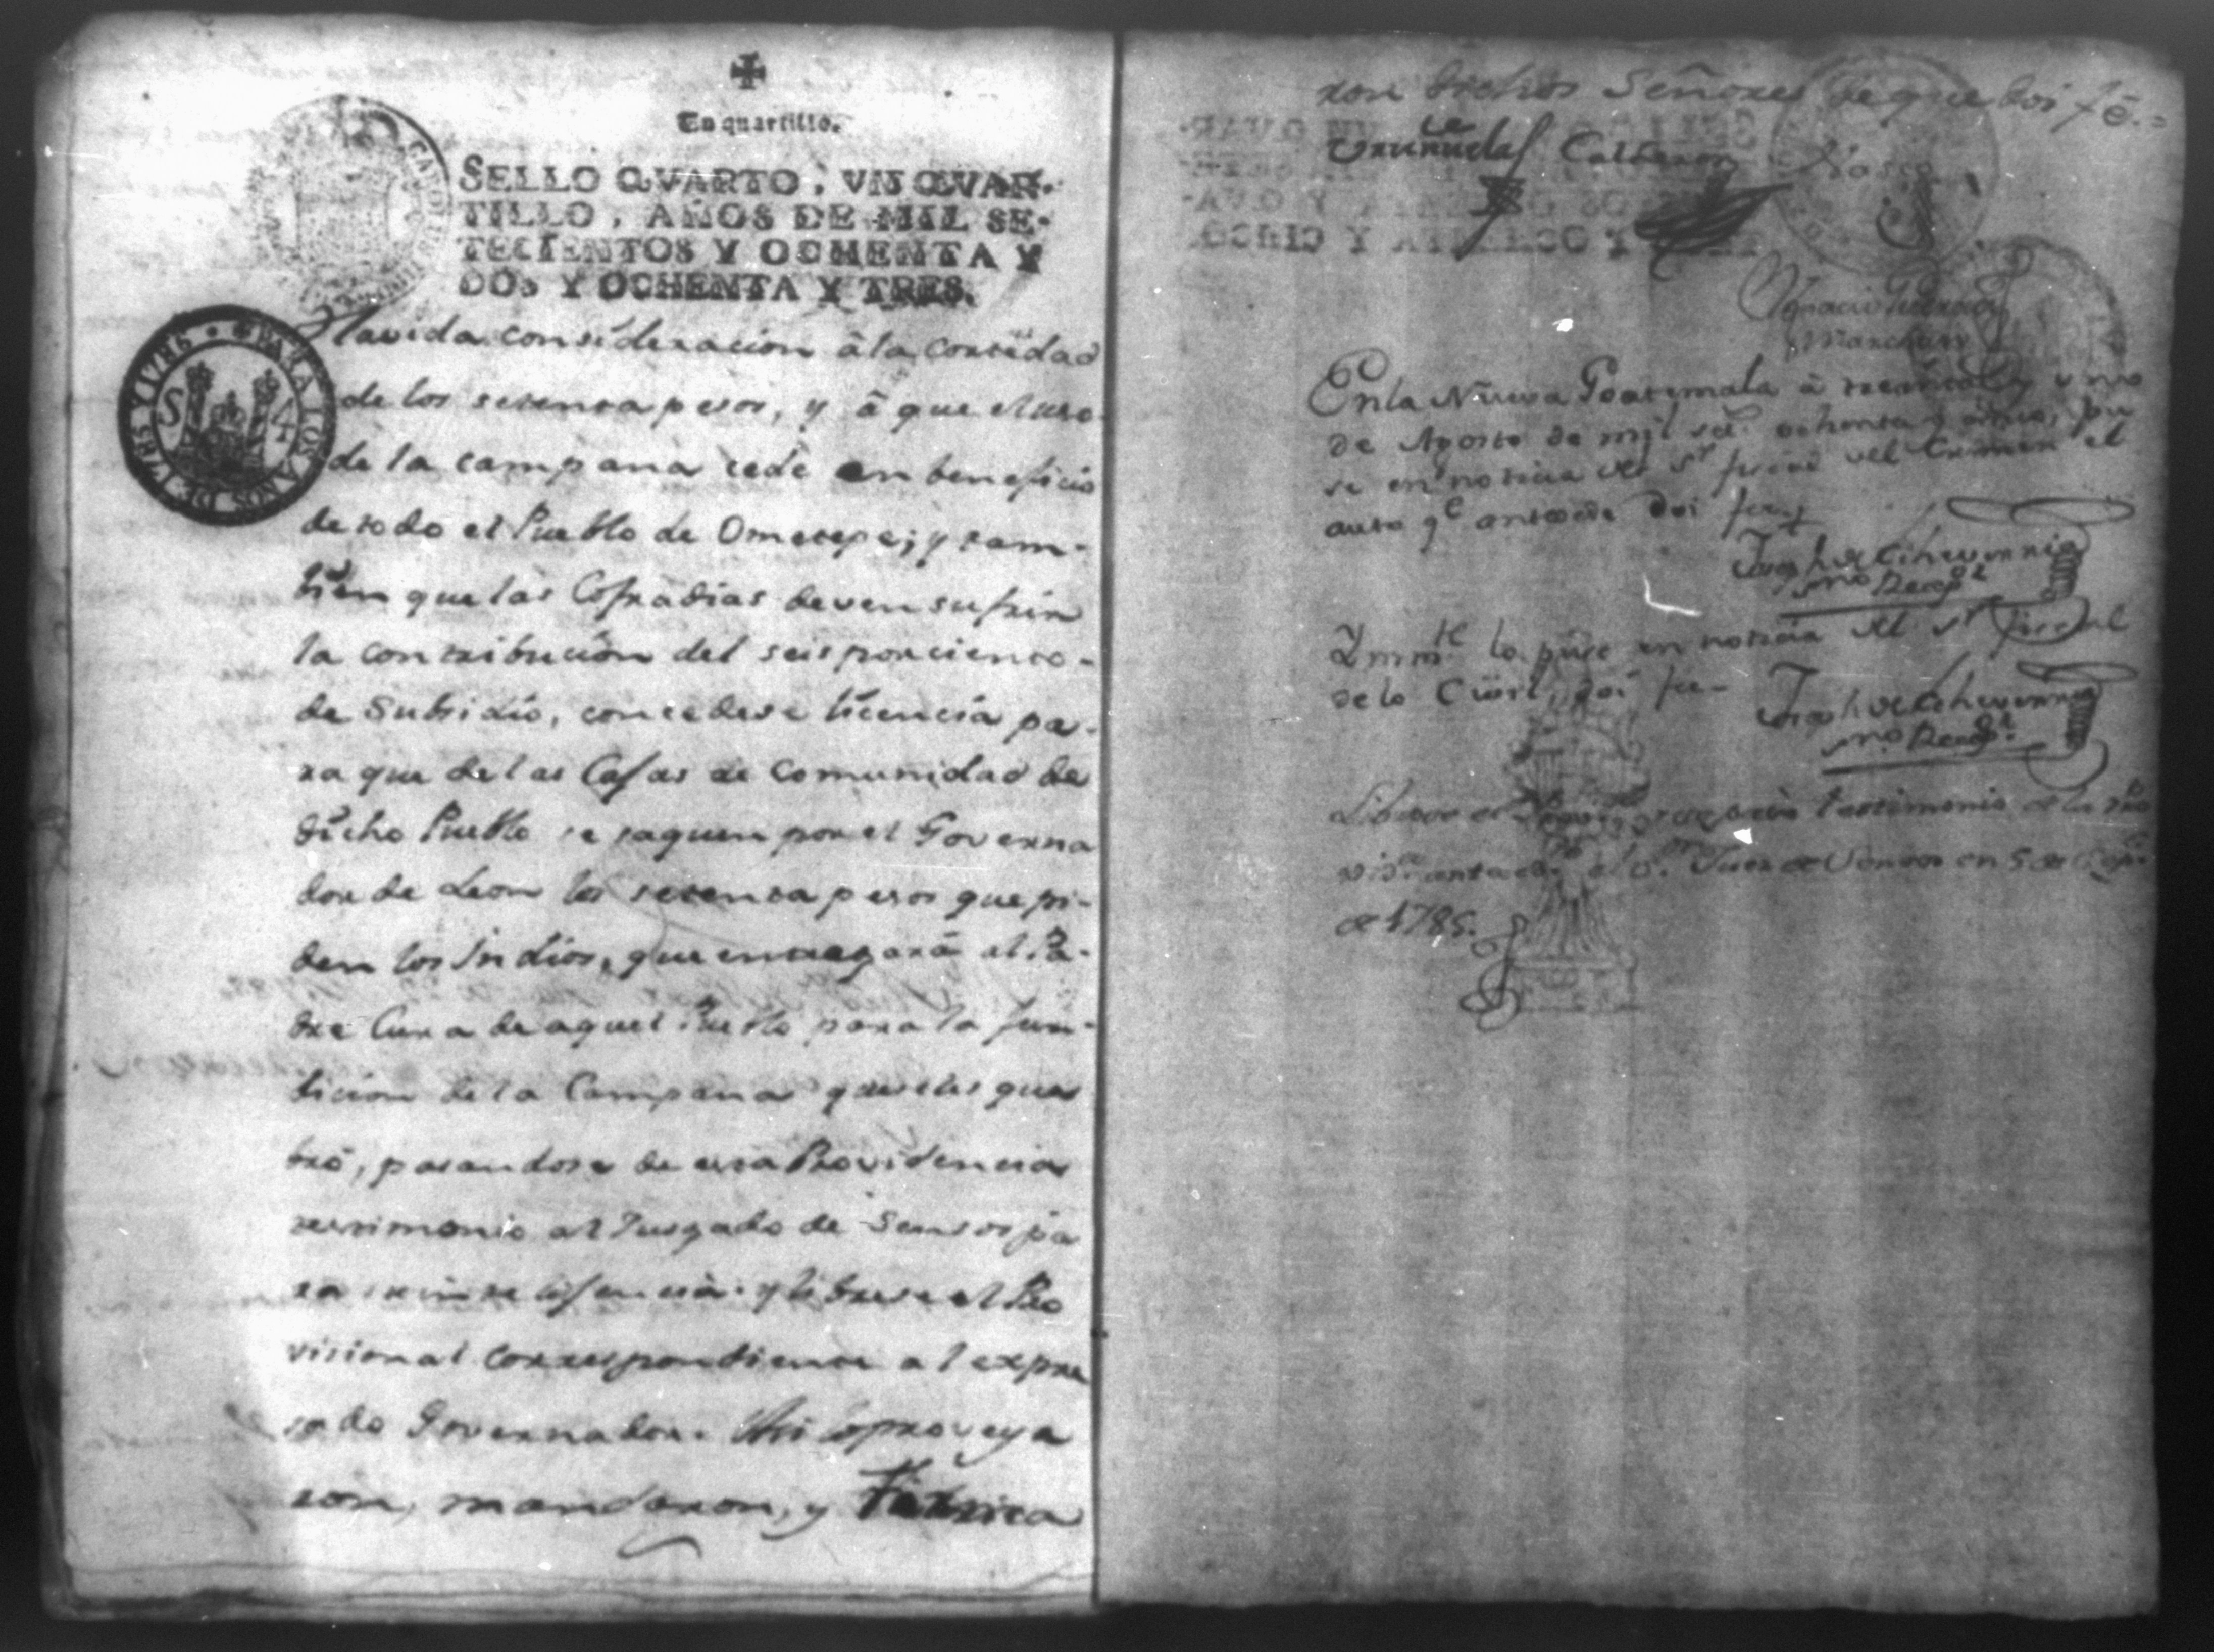 Un quartillo.
SELLO QVARTO, VN QVAR-
TILLO, AÑOS DE MIL SE-
TECIENTOS Y OCHENTA Y
DOS Y OCHENTA Y TRES.
PARA LOS AÑOS DE 1784 Y 1785
S 4
Havida consideracion â la cortedad
de los setenta pesos, y â que el uso
de la campana cede en beneficio
de todo el Pueblo de Ometepe; y tam-
bien que las Cofradias deven sufrir
la contribucion del seis por ciento
de Subsidio, concedese licencia pa-
ra que de las Casas de Comunidad de
dicho Pueblo se saquen por el Governa
dor de Leon los setenta pesos que pi-
den los Indios, que entregarâ al Pa-
dre Cura de aquel Pueblo para la fun-
dicion de la Campana que se les que
brô, pasandose de esta Providencia
testimonio al Jusgado de Sensos pa
ra y librese el Pro
visional correspondiente al expre
sado Governador. Asi lo proveye
ron, mandaron, y rubrica
ron dichos Señores de que doi fê.=
Calderon
Ignacio
En la Nueva Goatemala â treinta y uno
de Agosto de mil set.s ochenta y cinco, pu
se en noticia del S.r fiscal del Crimen el
auto q.e antecede doi fee
Joseph de Echeverria
Ymm.te lo puse en noticia del S.r fiscal
de lo Civil, doi fee
Joseph de Echeverria
Librose el testimonio de la Pro
vid.a anteced.te al S.r Juez de Sensos en 5 de
de 1785.